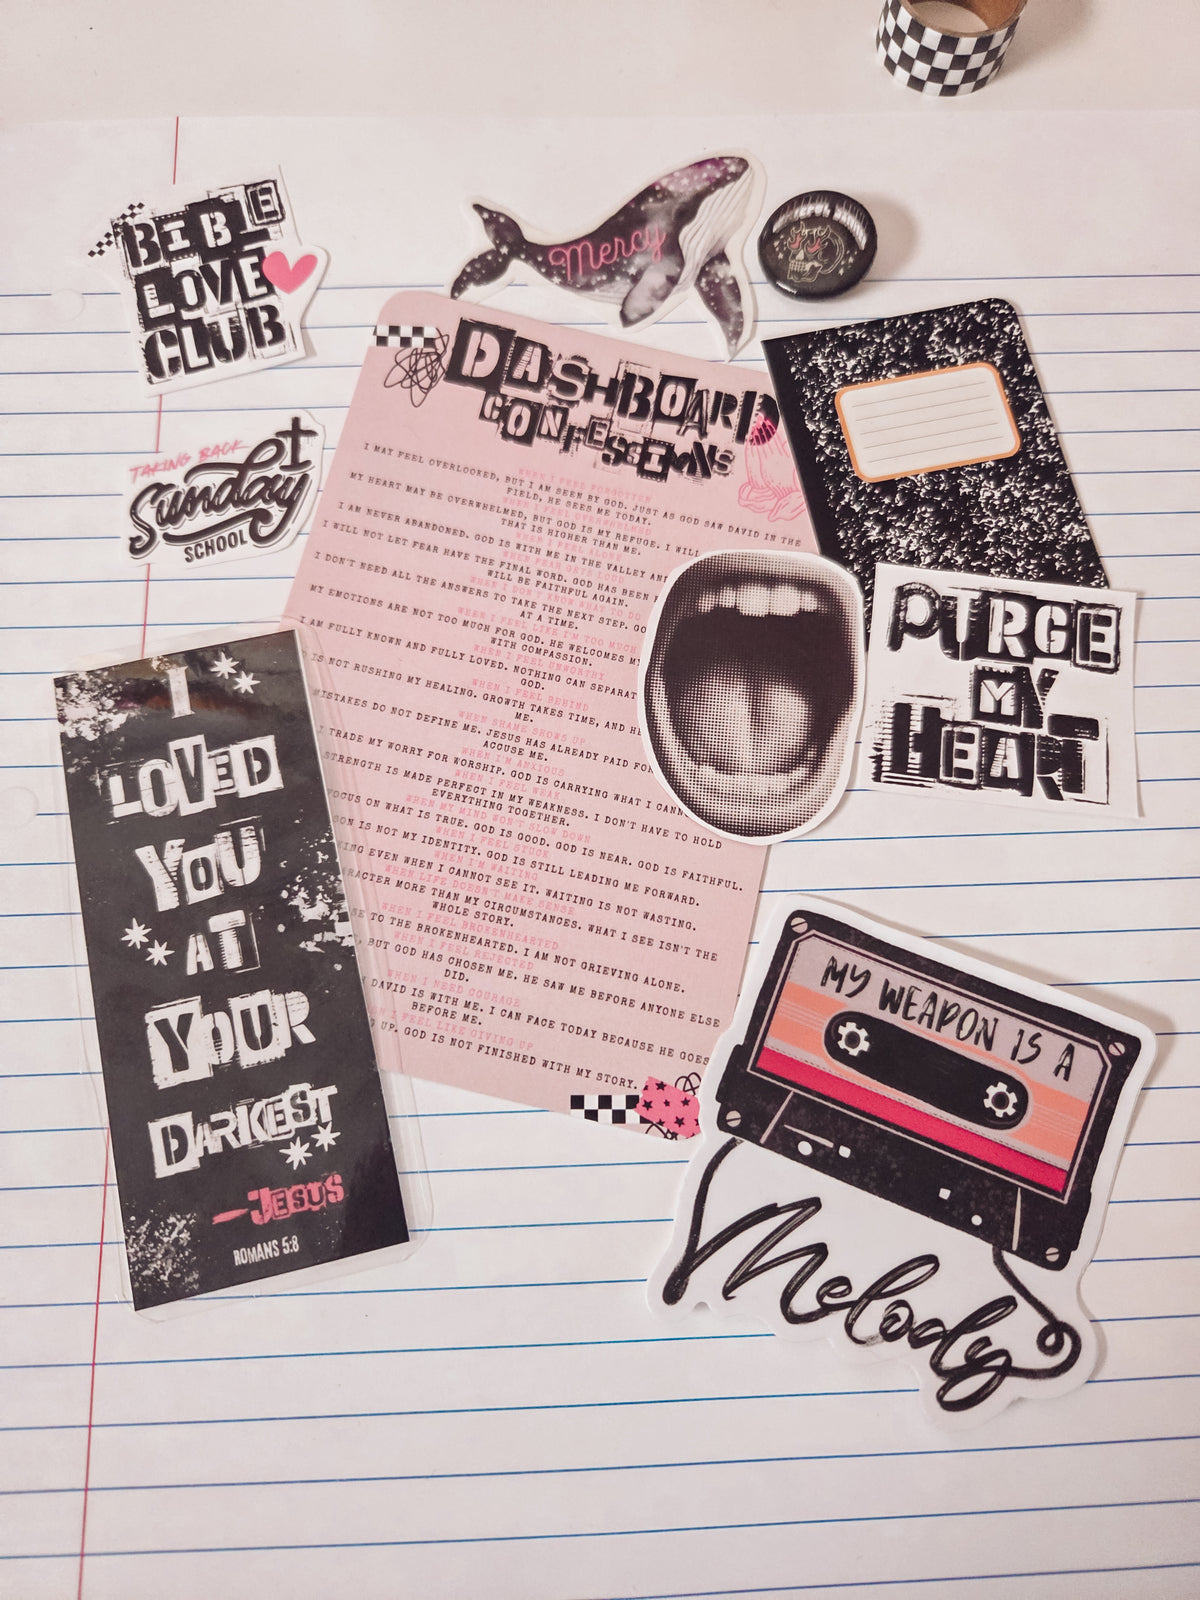 BIBLE
LOVE
CLUB
Mercy
TAKING BACK
Sunday
SCHOOL
DASHBOARD
CONFESSIONS
WHEN I FEEL FORGOTTEN
I MAY FEEL OVERLOOKED, BUT I AM SEEN BY GOD. JUST AS GOD SAW DAVID IN THE
FIELD, HE SEES ME TODAY.
WHEN I FEEL OVERWHELMED
MY HEART MAY BE OVERWHELMED, BUT GOD IS MY REFUGE. I WILL
THAT IS HIGHER THAN ME.
WHEN I FEEL ALONE
I AM NEVER ABANDONED. GOD IS WITH ME IN THE VALLEY AND
WHEN FEAR GETS LOUD
I WILL NOT LET FEAR HAVE THE FINAL WORD. GOD HAS BEEN
WILL BE FAITHFUL AGAIN.
WHEN I DON'T KNOW WHAT TO DO
I DON'T NEED ALL THE ANSWERS TO TAKE THE NEXT STEP.
AT A TIME.
WHEN I FEEL LIKE I'M TOO MUCH
MY EMOTIONS ARE NOT TOO MUCH FOR GOD. HE WELCOMES MY
WITH COMPASSION.
WHEN I FEEL UNWORTHY
I AM FULLY KNOWN AND FULLY LOVED. NOTHING CAN SEPARAT
GOD.
WHEN I FEEL BEHIND
IS NOT RUSHING MY HEALING. GROWTH TAKES TIME, AND HE
ME.
WHEN SHAME SHOWS UP
MISTAKES DO NOT DEFINE ME. JESUS HAS ALREADY PAID FOR
ACCUSE ME.
WHEN I'M ANXIOUS
I TRADE MY WORRY FOR WORSHIP. GOD IS CARRYING WHAT I CANN
WHEN I FEEL WEAK
STRENGTH IS MADE PERFECT IN MY WEAKNESS. I DON'T HAVE TO HOLD
EVERYTHING TOGETHER.
WHEN MY MIND WON'T SLOW DOWN
FOCUS ON WHAT IS TRUE. GOD IS GOOD. GOD IS NEAR. GOD IS FAITHFUL.
WHEN I FEEL STUCK
SON IS NOT MY IDENTITY. GOD IS STILL LEADING ME FORWARD.
WHEN I'M WAITING
KING EVEN WHEN I CANNOT SEE IT. WAITING IS NOT WASTING.
WHEN LIFE DOESN'T MAKE SENSE
RACTER MORE THAN MY CIRCUMSTANCES. WHAT I SEE ISN'T THE
WHOLE STORY.
WHEN I FEEL BROKENHEARTED
SE TO THE BROKENHEARTED. I AM NOT GRIEVING ALONE.
WHEN I FEEL REJECTED
, BUT GOD HAS CHOSEN ME. HE SAW ME BEFORE ANYONE ELSE
DID.
WHEN I NEED COURAGE
DAVID IS WITH ME. I CAN FACE TODAY BECAUSE HE GOES
BEFORE ME.
I FEEL LIKE GIVING UP
G UP. GOD IS NOT FINISHED WITH MY STORY.
PURGE
MY
HEART
I
LOVED
YOU
AT
YOUR
DARKEST
-JESUS
ROMANS 5:8
MY WEAPON IS A
Melody